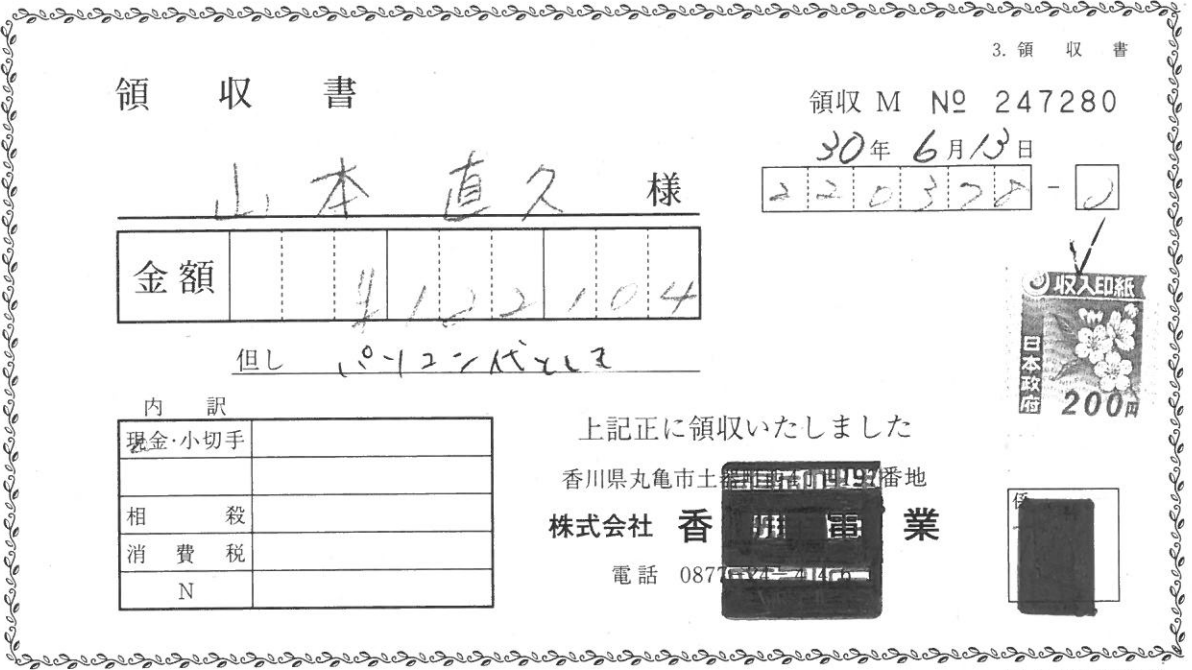 3. 領 収 書
領 収 書
領収 M № 247280
30年 6月13日
山本 直久 様
220378-0
金額 ¥122104
但し パソコン代として
収入印紙
日本政府
200円
内 訳
現金・小切手
相 殺
消 費 税
N
上記正に領収いたしました
香川県丸亀市土器町 番地
株式会社 香 業
電話 0877-24-4
係